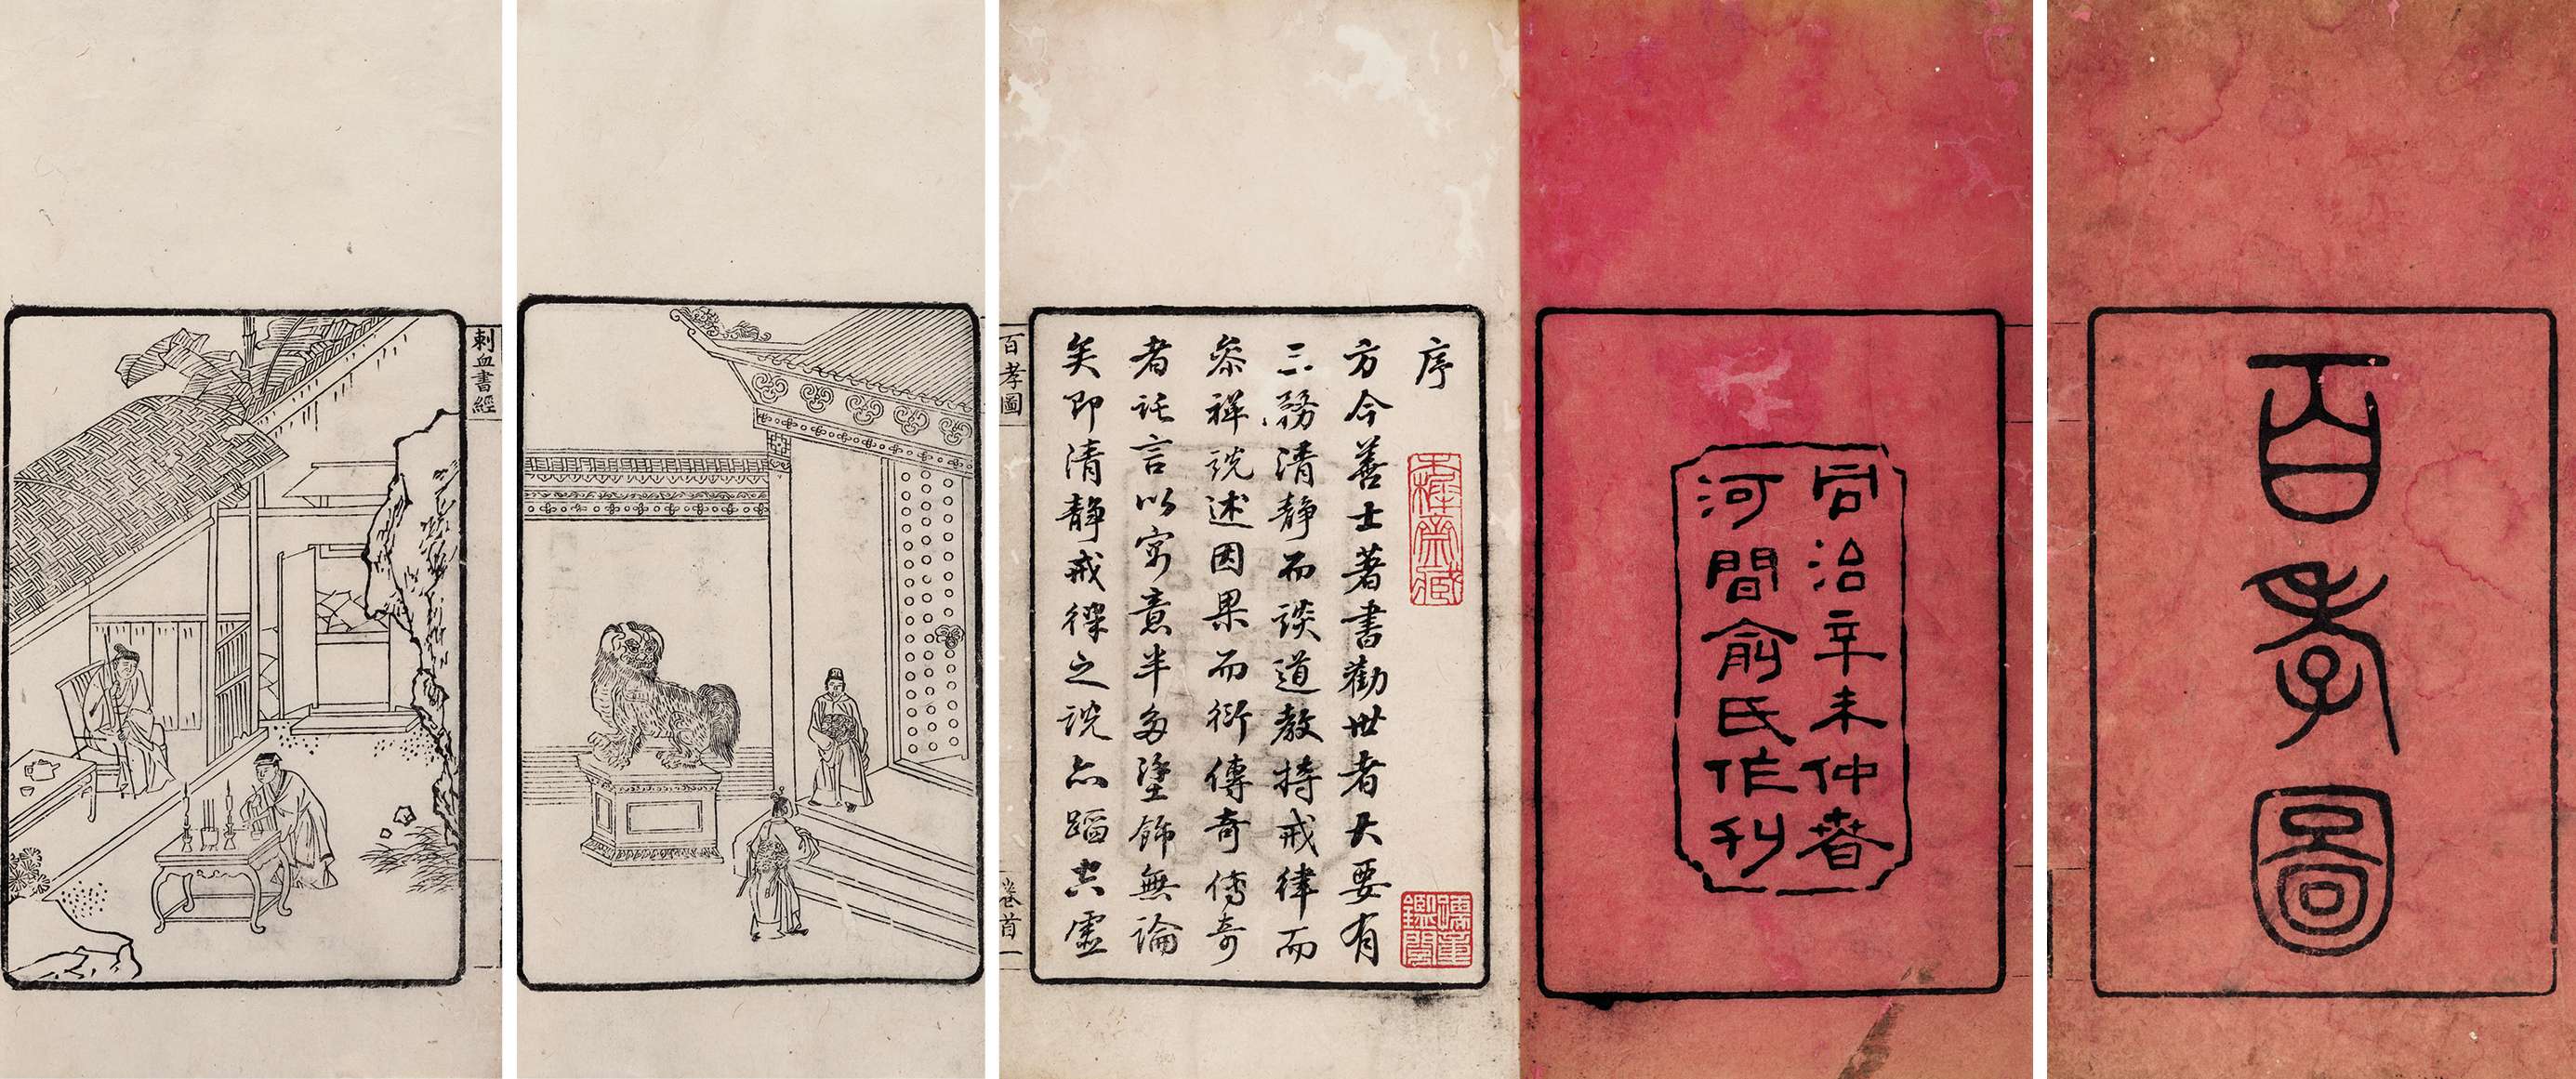 百孝圖
同治辛未仲春
河間俞氏作刊
序
方今善士著書勸世者大要有
三務清靜而談道教持戒律而
叅禪說述因果而衍傳奇傳奇
者託言以寓意半多塗飾無論
矣即清靜戒律之說亦蹈空虛
百孝圖
卷首
一
刺血書經